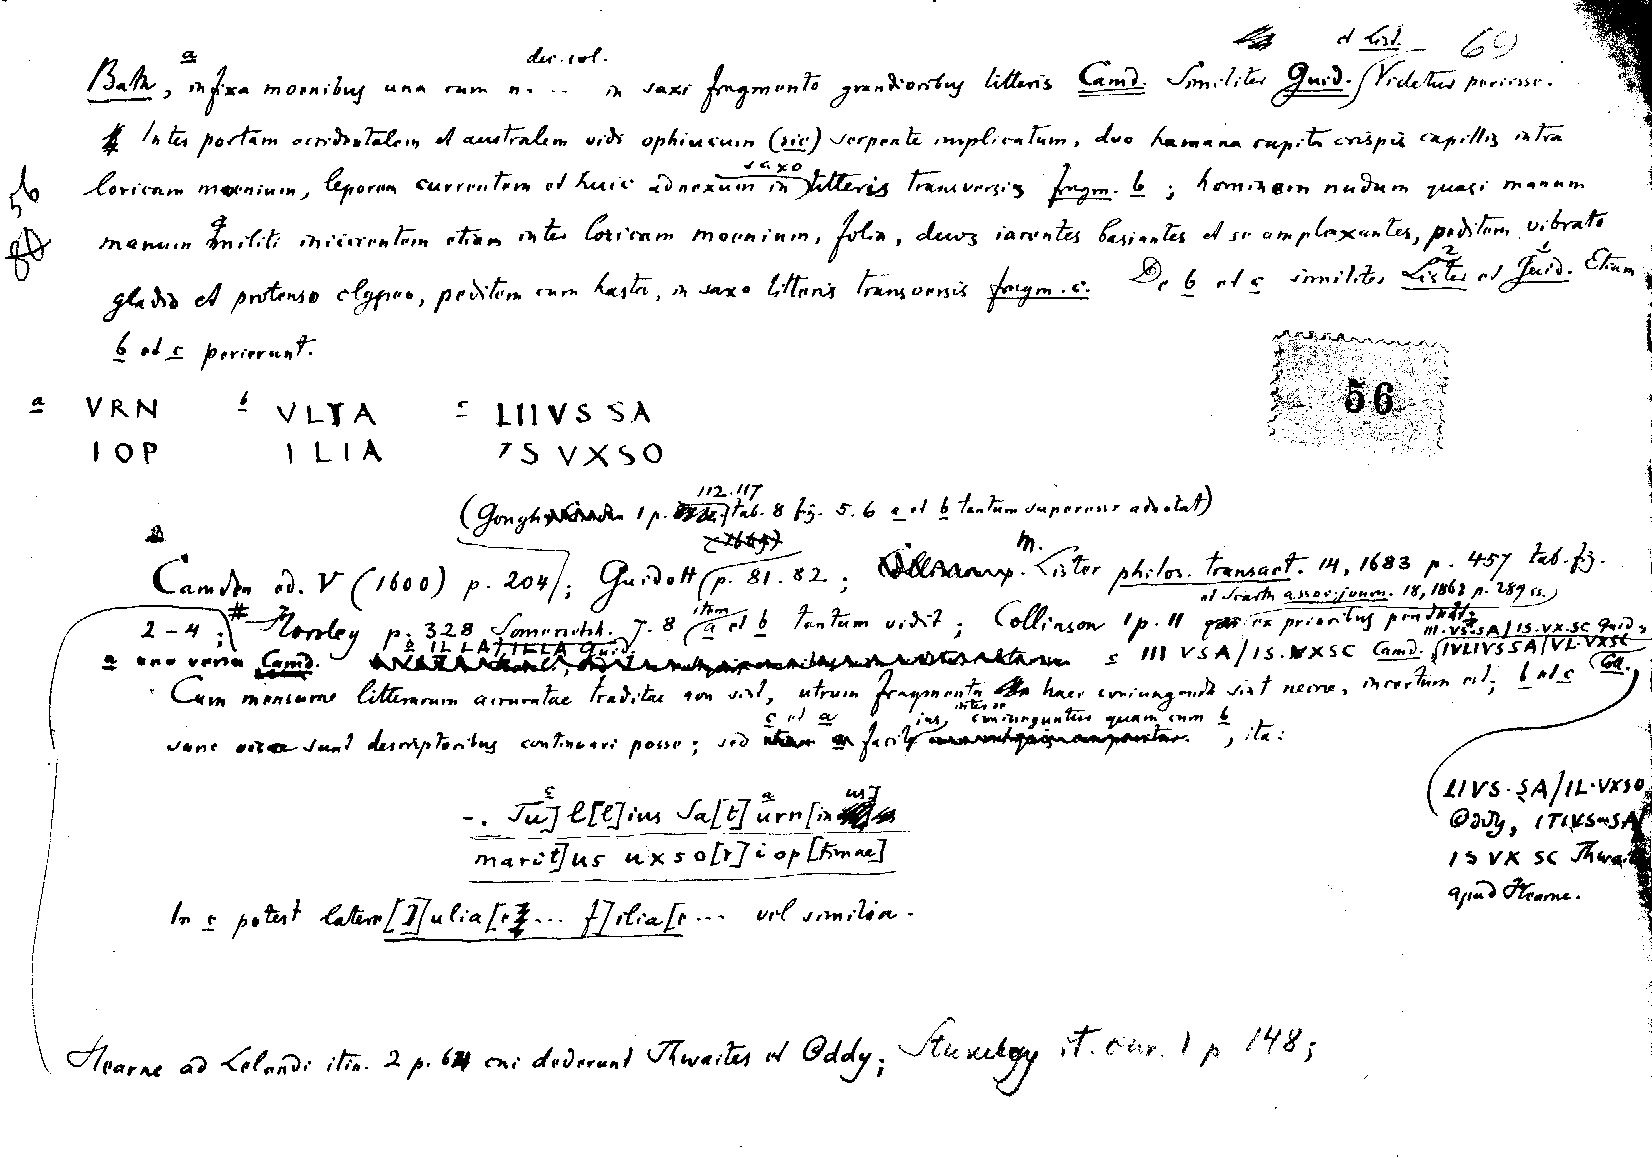 et List. 69
dec. col.
Bath, a infixa moenibus una cum n. ... in saxi fragmento grandioribus litteris Camd. Similiter Guid. Videtur periisse.
Inter portam occidentalem et australem vidi ophiucum (sic) serpente implicatum, duo humana capita crispis capillis intra
saxo
loricam moenium, leporem currentem et huic adnexum in litteris transversis fragm. b; hominem nudum quasi manum
manum militi iniicientem etiam inter loricam moenium, folia, duos iacentes basiantes et se amplexantes, peditem vibrato
gladio et protenso clypeo, peditem cum hasta, in saxo litteris transversis fragm. c. De b et c similiter Lister et Guid. Etiam
b et c perierunt.
56
80
56
a VRN b VLTA c LIIVS SA
IOP ILIA 7S VXSO
112.117
(Gough 1 p. tab. 8 fig. 5. 6 a et b tantum superesse adnotat)
(1669)
Camden ed. V (1600) p. 204; Guidott p. 81. 82; M. Lister philos. transact. 14, 1683 p. 457 tab. fig.
et Scarth assoc. journ. 18, 1862 p. 289 ss.
2-4; # Horsley p. 328 Somersetsh. 7. 8 item a et b tantum vidit; Collinson 1 p. 11 ex prioribus pendet
a uno versu Camd. b ILLA/ILLA Guid. c III VSA/IS. VXSC Camd. IVLIVSSA/VL.VXSC Coll.
III.VS.SA/IS.VX.SC Guid.
Cum mensurae litterarum accuratae traditae non sint, utrum fragmenta haec coniungenda sint necne, incertum est; b et c
c et a inter se coniunguntur quam cum b
sunt descriptoribus continuari posse; sed facilius, ita:
c a us]
-. Ju]l[l]ius Sa[t]urn[in
marit]us uxso[r]i op[timae]
In c potest latere [I]ulia[e ... f]ilia[e ... vel similia.
LIVS.SA/IL.VXSO
Oddy, ITIVS SA
IS VX SC Thwait
apud Hearne.
Hearne ad Lelandi itin. 2 p. 64 cui dederunt Thwaites et Oddy; Stukeley it. cur. 1 p 148;